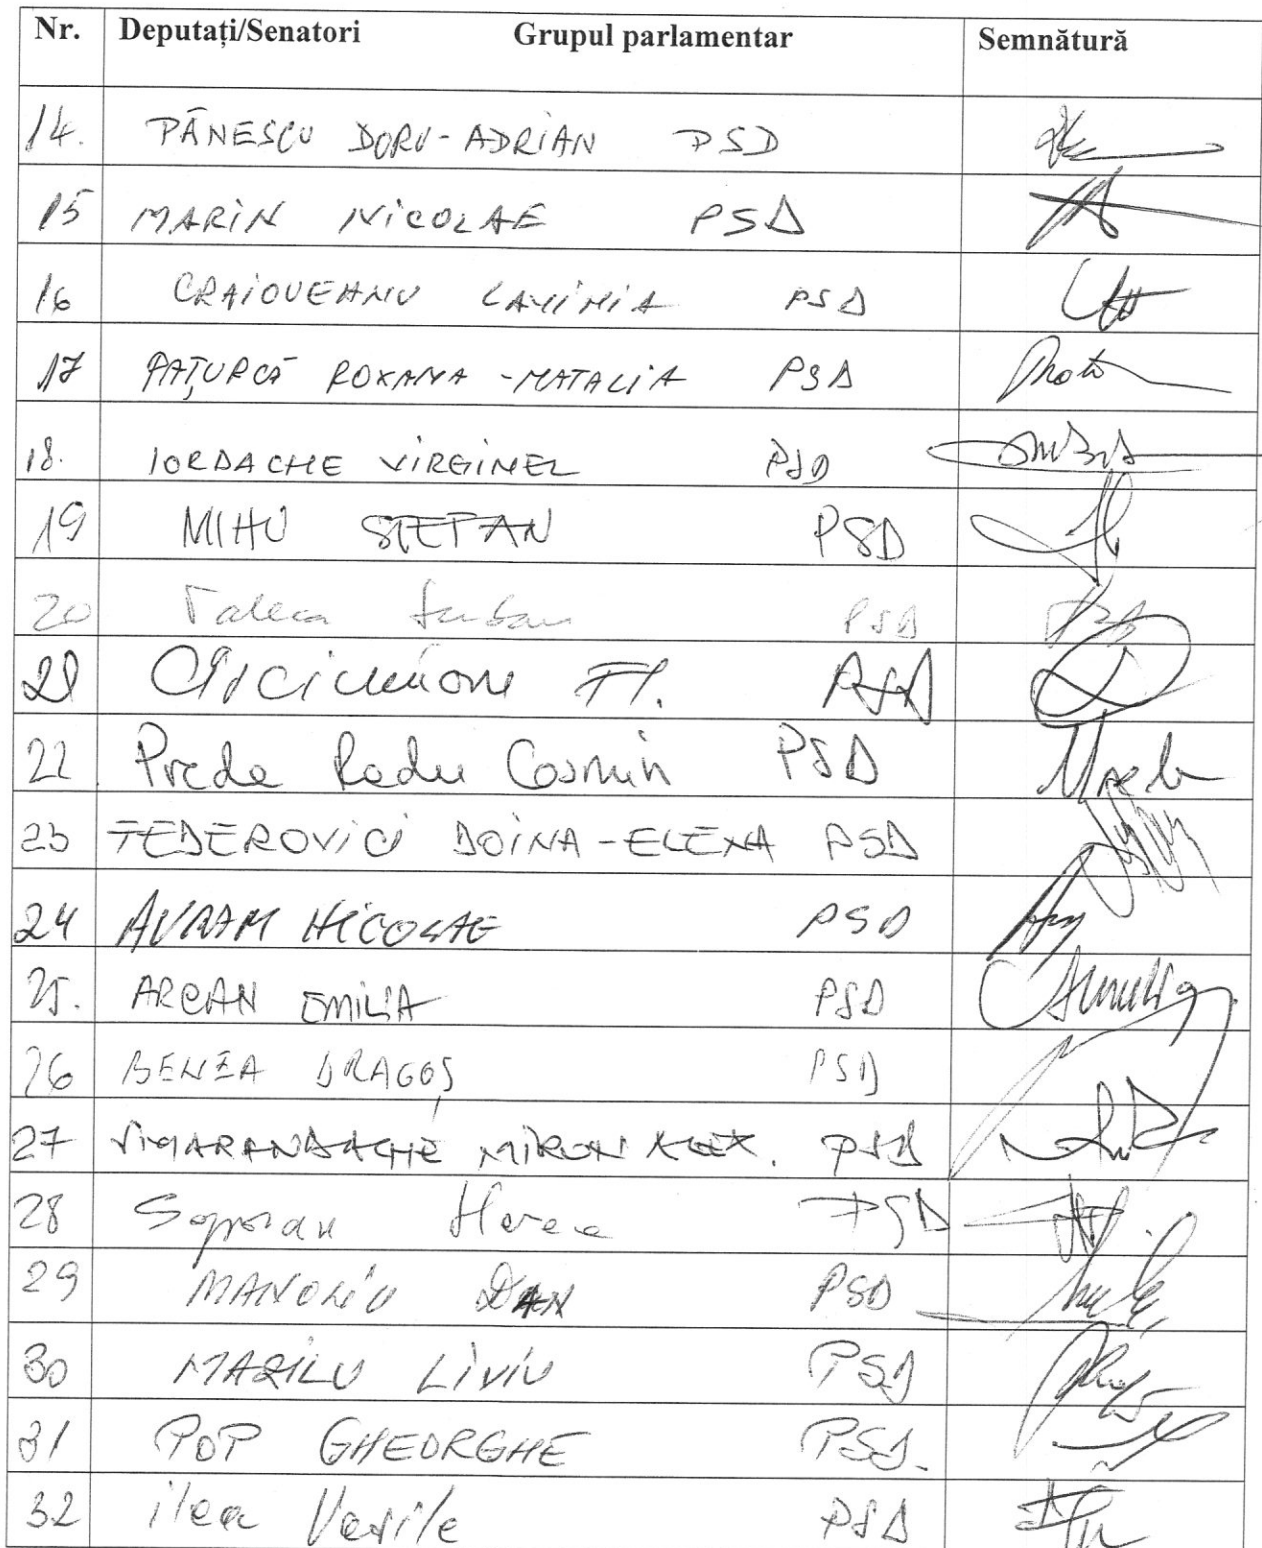 Nr. Deputați/Senatori Grupul parlamentar Semnătură
14. PĂNESCU DORU-ADRIAN PSD
15 MARIN NICOLAE PSD
16 CRAIOVEANU LAVINIA PSD
17 PAȚURCĂ ROXANA-NATALIA PSD
18. IORDACHE VIRGINEL PSD
19 MIHU ȘTEFAN PSD
20 PSD
21 Fl. PSD
22 Preda Radu Cosmin PSD
23 FEDEROVICI DOINA-ELENA PSD
24 AVRAM NICOLAE PSD
25. ARCAN EMILIA PSD
26 BENEA DRAGOȘ PSD
27 SMARANDACHE MIRON ALEX. PSD
28 Soporan PSD
29 MANOLIU DAN PSD
30 MAZILU LIVIU PSD
31 POP GHEORGHE PSD.
32 ilea Vasile PSD